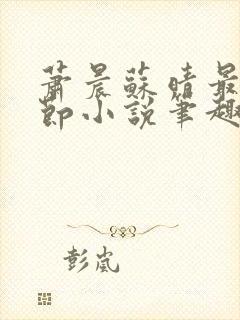 蕭晨蘇晴最
節小說筆趣
彭嵐